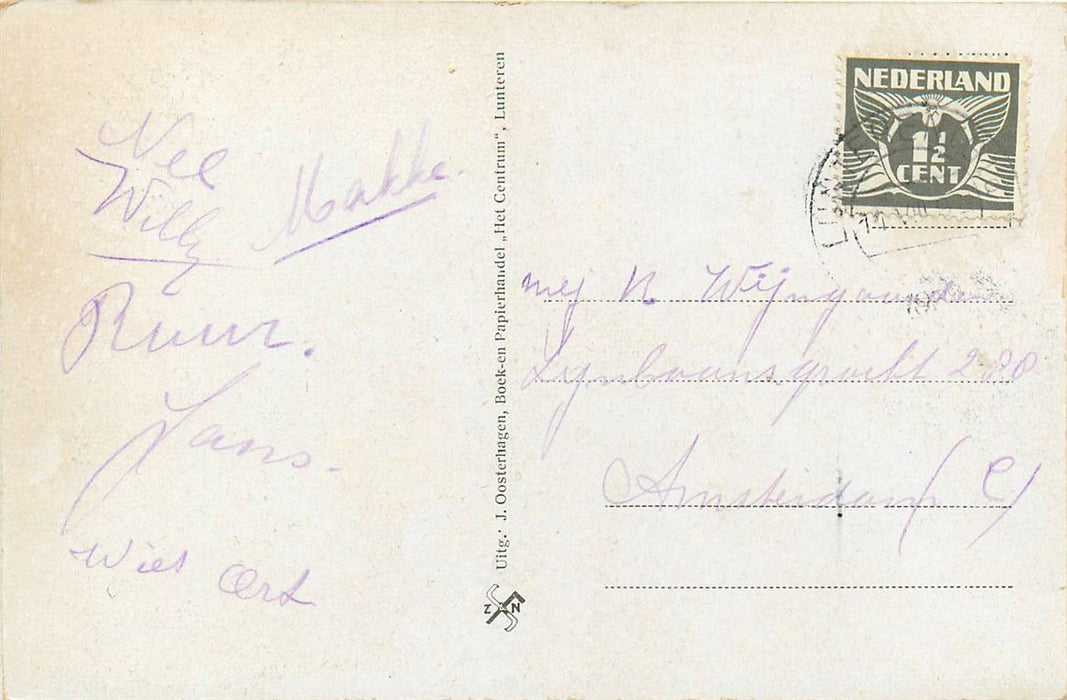 Nel
Willy Makke.
Ruur.
Jans.
Wies Ort
Uitg.: J. Oosterhagen, Boek-en Papierhandel „Het Centrum“, Lunteren
Z N
NEDERLAND
1½
CENT
LUNTEREN
mej N Wijngaarden
Lijnbaansgracht 280
Amsterdam (C)